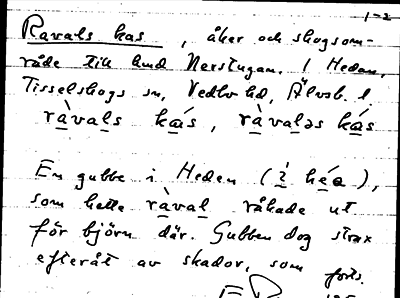 1-2
Ravals kas, åker och skogsom-
råde till hmd Nerstugan. / Heden,
Tisselskogs sn, Vedbo hd, Älvsb. l
ràvals kás, ràvaləs kás
En gubbe i Heden (ì héa),
som hette ràval råkade ut
för björn där. Gubben dog strax
efteråt av skador, som forts.